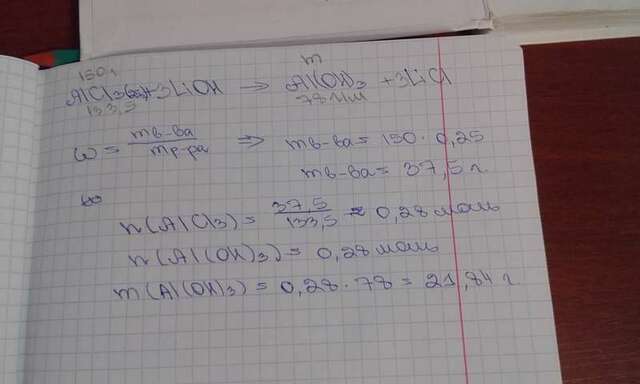 150 г m
AlCl3 + 3LiOH → Al(OH)3 + 3LiCl
133,5 78 г/моль
ω = mв-ва / mр-ра ⇒ mв-ва = 150 · 0,25
mв-ва = 37,5 г.
n(AlCl3) = 37,5 / 133,5 ≈ 0,28 моль
n(Al(OH)3) = 0,28 моль
m(Al(OH)3) = 0,28 · 78 = 21,84 г.